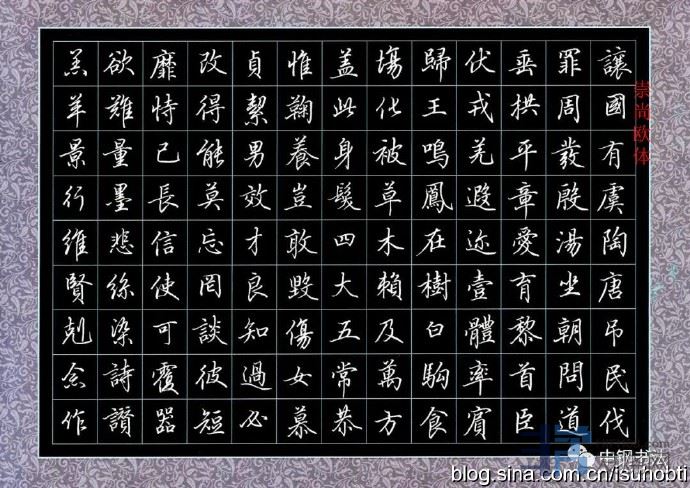 讓國有虞陶唐吊民伐
罪周發殷湯坐朝問道
垂拱平章愛育黎首臣
伏戎羌遐迩壹體率賓
歸王鳴鳳在樹白駒食
塲化被草木賴及萬方
盖此身髮四大五常恭
惟鞠養豈敢毀傷女慕
貞絜男效才良知過必
改得能莫忘罔談彼短
靡恃己長信使可覆器
欲難量墨悲絲染詩讚
羔羊景行維賢剋念作
崇尚欧体
中钢书法
blog.sina.com.cn/isuhobti